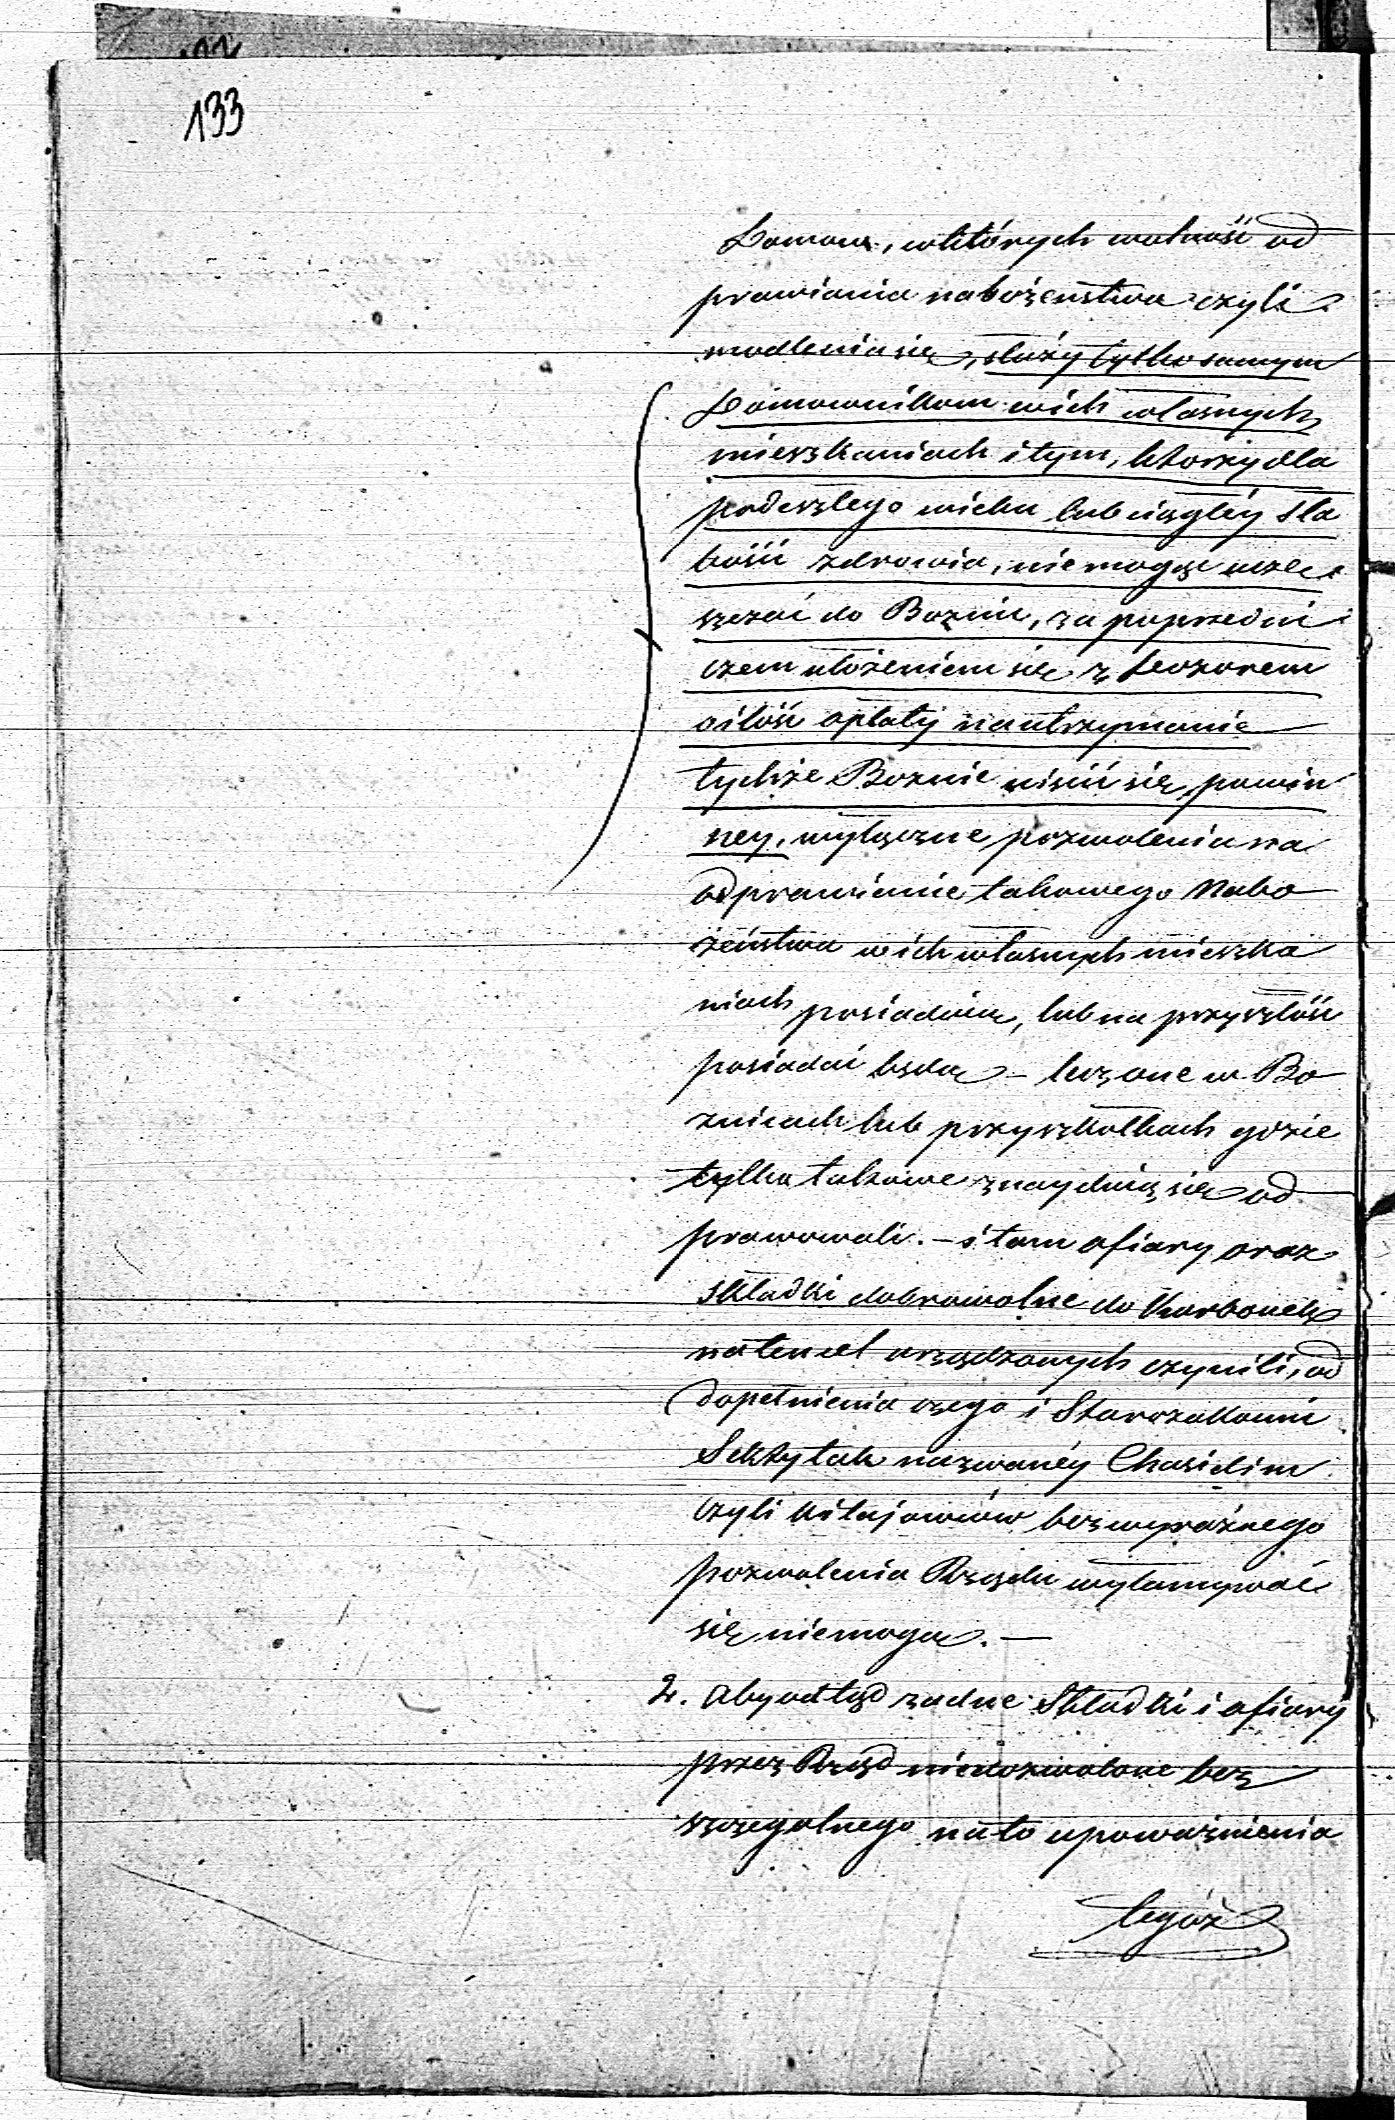 133
Domow, wktórych wolność od
prawiania nabożenstwa czyli
modlenia się, służy tylko samym
Domownikom wich własnych
mieszkaniach i tym, ktorzy dla
podeszłego wieku lub ciągłéy sła
bości zdrowia, niemogąc uczę
szczać do Boznic, za poprzedni
czem ułożeniem się z Dozorem
oilość opłaty nautrzymanie
tychże Boznic uiścić się powin
ney, wyłączne pozwolenia na
odprawianie takowego Nabo
żeństwa w ich własnych mieszka
niach posiadaią, lub na przyszłość
posiadać będą – lecz one w Bo
znicach lub przyszkołkach gdzie
tylko takowe znayduią się od
prawowali. – i tam ofiary oraz
składki dobrowolne do Karbonek
na ten cel urządzonych czynili, od
dopełnienia czego i Starozakonni
Sekty tak nazwanéy Chasidim
czyli Kitajowców bez wyraźnego
pozwolenia Rządu wyłamywać
się niemogą. —
2. Aby odtąd żadne Składki i ofiary
przez Rząd niedozwolone bez
szczegolnego na to upoważnienia
tegóż